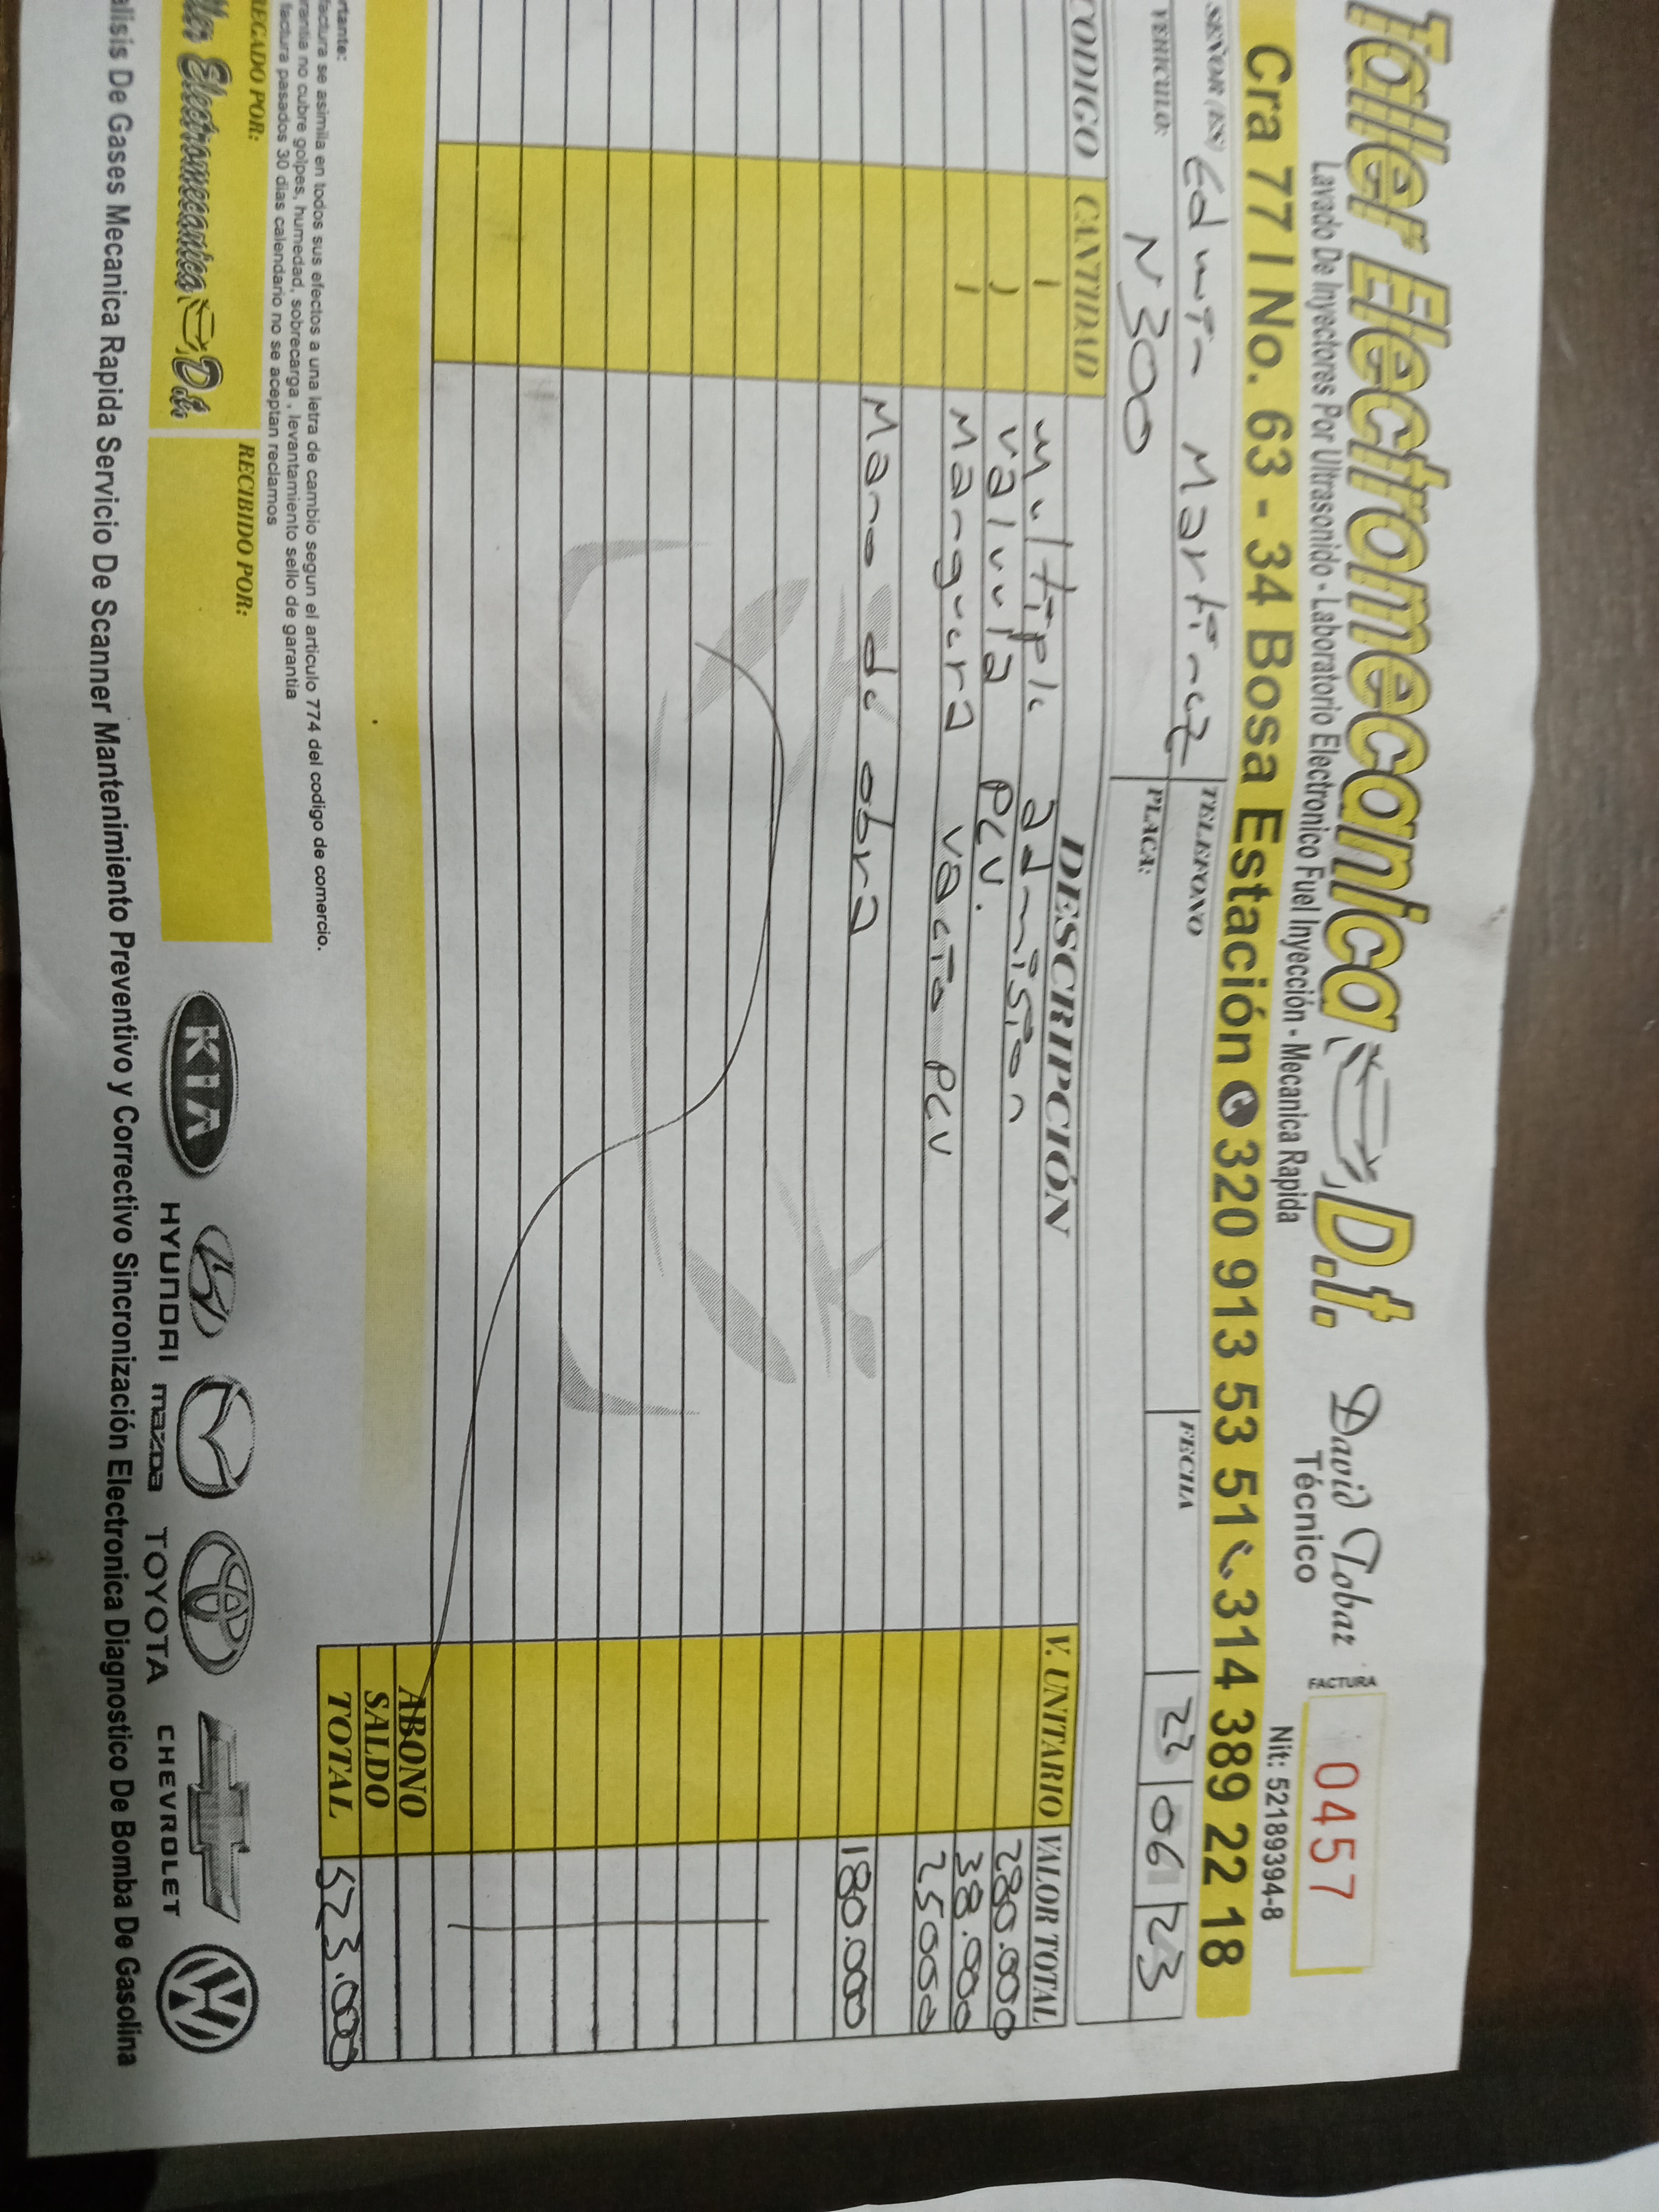 Taller Electromecanica D.t. David Tobar
Técnico
FACTURA 0457
Lavado De Inyectores Por Ultrasonido - Laboratorio Electronico Fuel Inyección - Mecanica Rapida
Nit: 52189394-8
Cra 77 I No. 63 - 34 Bosa Estación 320 913 53 51 314 389 22 18
SEÑOR (ES) Martinez TELEFONO FECHA
VEHICULO: N300 PLACA: 22 06 23
CODIGO CANTIDAD DESCRIPCIÓN V. UNITARIO VALOR TOTAL
1 Multiple admision 280.000
1 valvula PCV. 38.000
1 Manguera vacio PCV 25000
Mano de obra 180.000
ABONO
SALDO
TOTAL 523.000
rtante:
factura se asimila en todos sus efectos a una letra de cambio segun el articulo 774 del codigo de comercio.
rantia no cubre golpes, humedad, sobrecarga , levantamiento sello de garantia
factura pasados 30 dias calendario no se aceptan reclamos
REGADO POR: RECIBIDO POR:
ller Electromecanica D.t.
KIA HYUNDAI mazda TOYOTA CHEVROLET
alisis De Gases Mecanica Rapida Servicio De Scanner Mantenimiento Preventivo y Correctivo Sincronización Electronica Diagnostico De Bomba De Gasolina